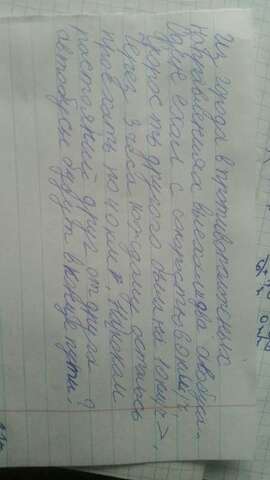 Из города в противоположных
направлениях выехали два автобуса.
Один ехал с скоростью 60км/ч
скорость другого была на 10км/ч >,
Через 3 часа каждому осталось
проехать по 40км. На каком
расстоянии друг от друга
автобусы будут в конце пути.